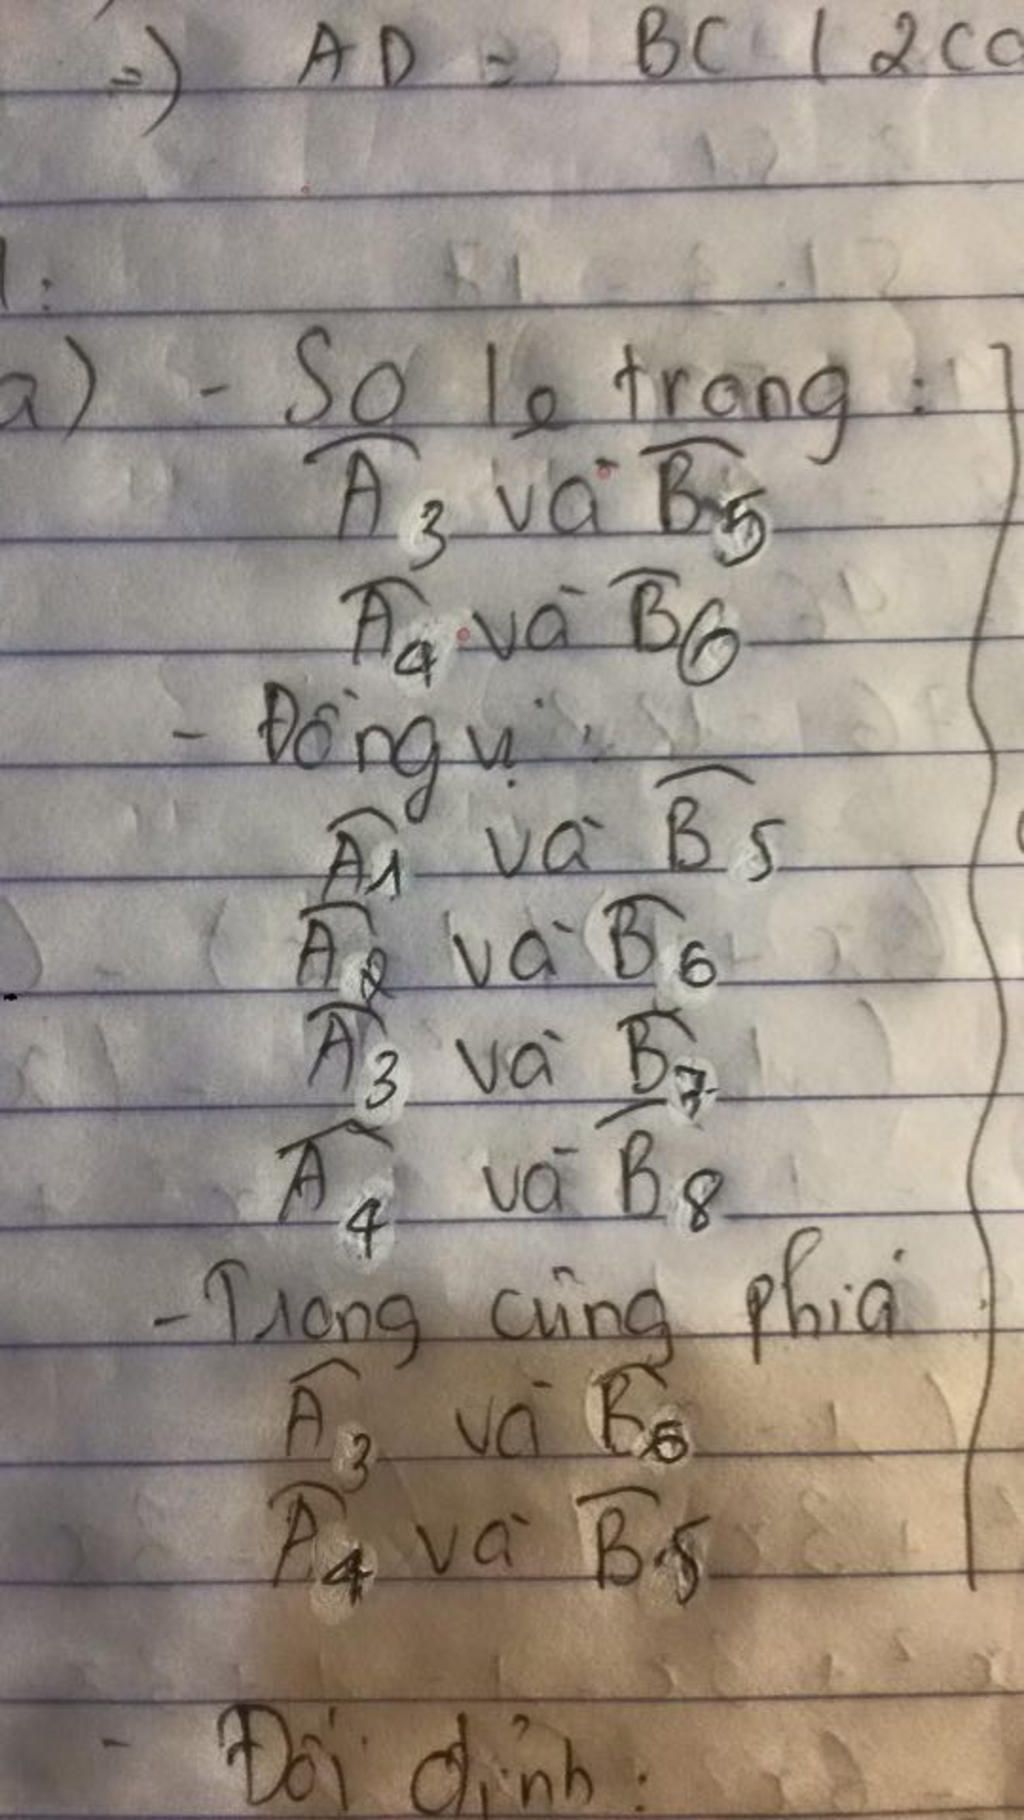 =) AD = BC ( 2 cạ
1:
a) - So le trong :
A3 và B5
A4 và B6
- Đồng vị :
A1 và B5
A2 và B6
A3 và B7
A4 và B8
- Trong cùng phía :
A3 và B6
A4 và B5
- Đối đỉnh :